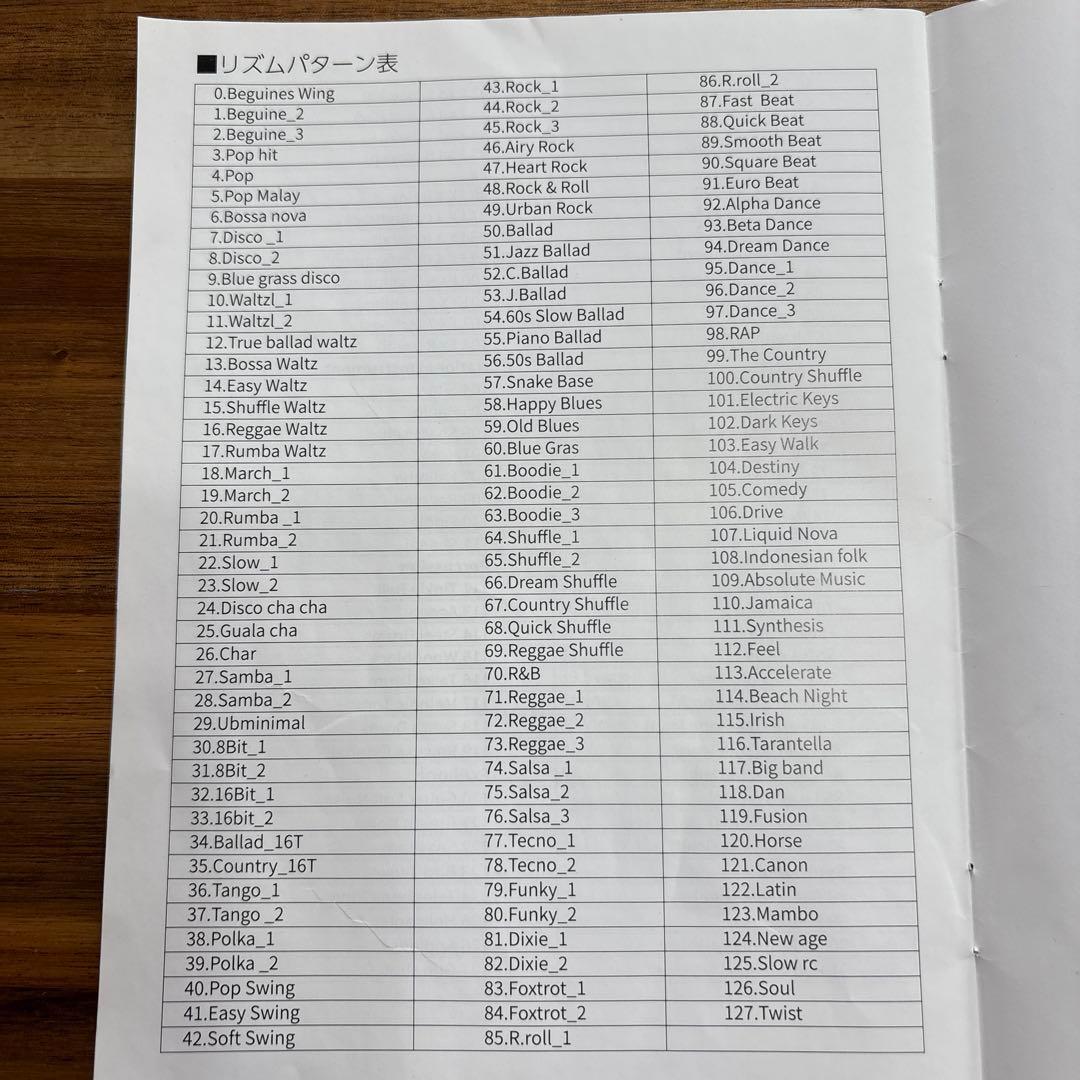 ■リズムパターン表
0.Beguines Wing
1.Beguine_2
2.Beguine_3
3.Pop hit
4.Pop
5.Pop Malay
6.Bossa nova
7.Disco _1
8.Disco_2
9.Blue grass disco
10.Waltzl_1
11.Waltzl_2
12.True ballad waltz
13.Bossa Waltz
14.Easy Waltz
15.Shuffle Waltz
16.Reggae Waltz
17.Rumba Waltz
18.March_1
19.March_2
20.Rumba _1
21.Rumba_2
22.Slow_1
23.Slow_2
24.Disco cha cha
25.Guala cha
26.Char
27.Samba_1
28.Samba_2
29.Ubminimal
30.8Bit_1
31.8Bit_2
32.16Bit_1
33.16bit_2
34.Ballad_16T
35.Country_16T
36.Tango_1
37.Tango _2
38.Polka_1
39.Polka _2
40.Pop Swing
41.Easy Swing
42.Soft Swing
43.Rock_1
44.Rock_2
45.Rock_3
46.Airy Rock
47.Heart Rock
48.Rock & Roll
49.Urban Rock
50.Ballad
51.Jazz Ballad
52.C.Ballad
53.J.Ballad
54.60s Slow Ballad
55.Piano Ballad
56.50s Ballad
57.Snake Base
58.Happy Blues
59.Old Blues
60.Blue Gras
61.Boodie_1
62.Boodie_2
63.Boodie_3
64.Shuffle_1
65.Shuffle_2
66.Dream Shuffle
67.Country Shuffle
68.Quick Shuffle
69.Reggae Shuffle
70.R&B
71.Reggae_1
72.Reggae_2
73.Reggae_3
74.Salsa _1
75.Salsa_2
76.Salsa_3
77.Tecno_1
78.Tecno_2
79.Funky_1
80.Funky_2
81.Dixie_1
82.Dixie_2
83.Foxtrot_1
84.Foxtrot_2
85.R.roll_1
86.R.roll_2
87.Fast Beat
88.Quick Beat
89.Smooth Beat
90.Square Beat
91.Euro Beat
92.Alpha Dance
93.Beta Dance
94.Dream Dance
95.Dance_1
96.Dance_2
97.Dance_3
98.RAP
99.The Country
100.Country Shuffle
101.Electric Keys
102.Dark Keys
103.Easy Walk
104.Destiny
105.Comedy
106.Drive
107.Liquid Nova
108.Indonesian folk
109.Absolute Music
110.Jamaica
111.Synthesis
112.Feel
113.Accelerate
114.Beach Night
115.Irish
116.Tarantella
117.Big band
118.Dan
119.Fusion
120.Horse
121.Canon
122.Latin
123.Mambo
124.New age
125.Slow rc
126.Soul
127.Twist